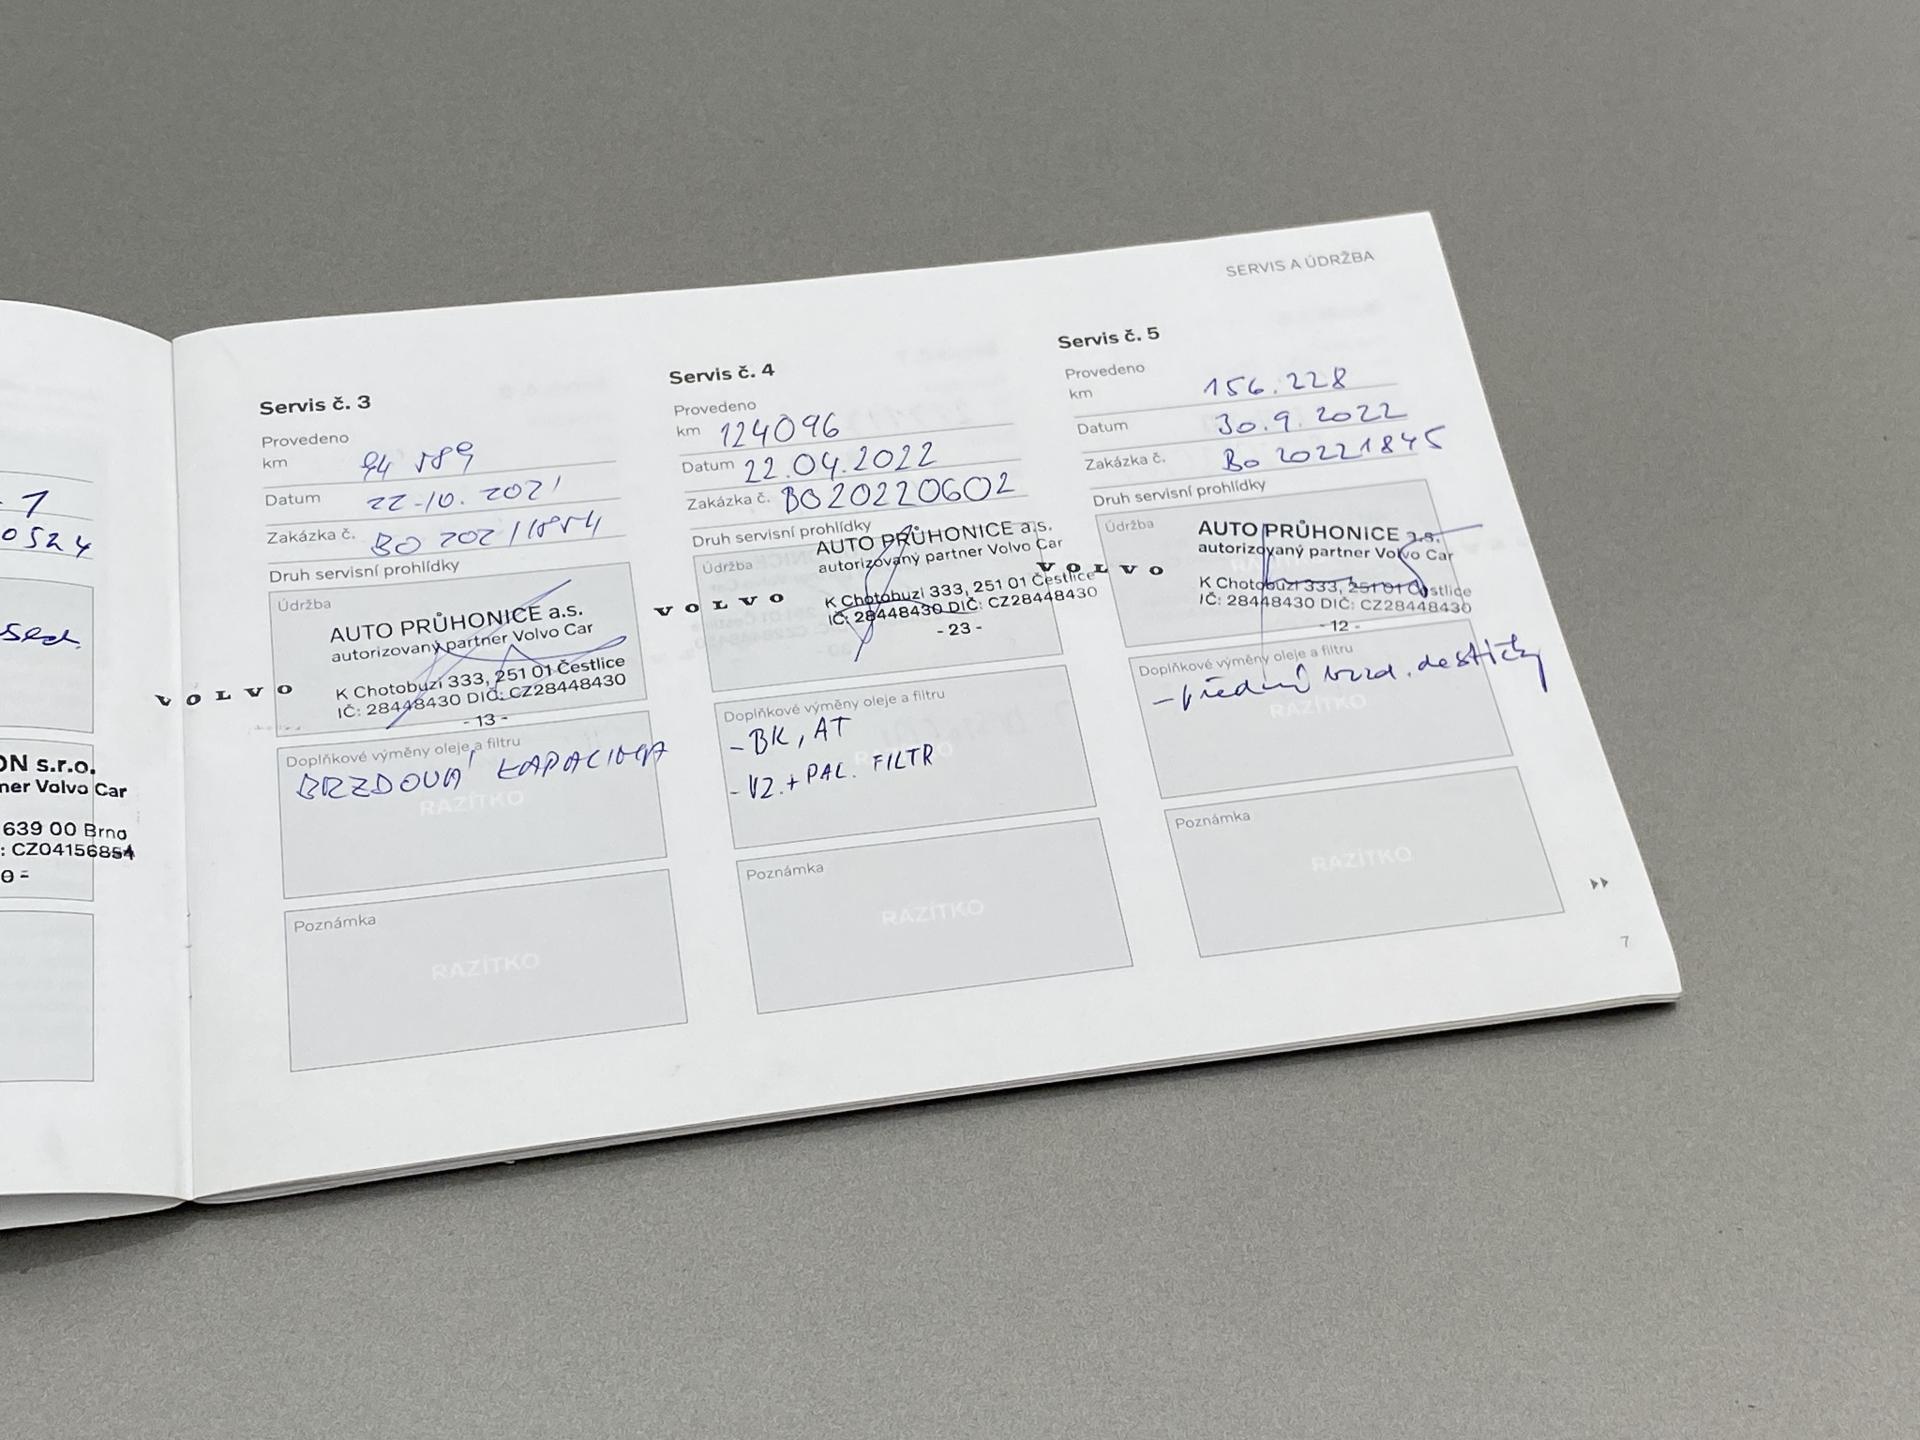 - 1
0524
sed.
ON s.r.o.
ner Volvo Car
639 00 Brno
: CZ04156854
0 -
SERVIS A ÚDRŽBA
Servis č. 3
Provedeno
km 94 589
Datum 22.10.2021
Zakázka č. BO 2021
Druh servisní prohlídky
Údržba
AUTO PRŮHONICE a.s.
autorizovaný partner Volvo Car
VOLVO
K Chotobuzi 333, 251 01 Čestlice
IČ: 28448430 DIČ: CZ28448430
- 13 -
Doplňkové výměny oleje a filtru
BRZDOVÁ KAPALINA
RAZÍTKO
Poznámka
RAZÍTKO
Servis č. 4
Provedeno
km 124096
Datum 22.04.2022
Zakázka č. BO20220602
Druh servisní prohlídky
Údržba
AUTO PRŮHONICE a.s.
autorizovaný partner Volvo Car
VOLVO
K Chotobuzi 333, 251 01 Čestlice
IČ: 28448430 DIČ: CZ28448430
- 23 -
Doplňkové výměny oleje a filtru
- BK, AT
- VZ. + PAL. FILTR
Poznámka
RAZÍTKO
Servis č. 5
Provedeno
km 156.228
Datum 30.9.2022
Zakázka č. BO 20221845
Druh servisní prohlídky
Údržba
AUTO PRŮHONICE a.s.
autorizovaný partner Volvo Car
VOLVO
K Chotobuzi 333, 251 01 Čestlice
IČ: 28448430 DIČ: CZ28448430
- 12 -
Doplňkové výměny oleje a filtru
- přední brzd. destičky
RAZÍTKO
Poznámka
RAZÍTKO
7